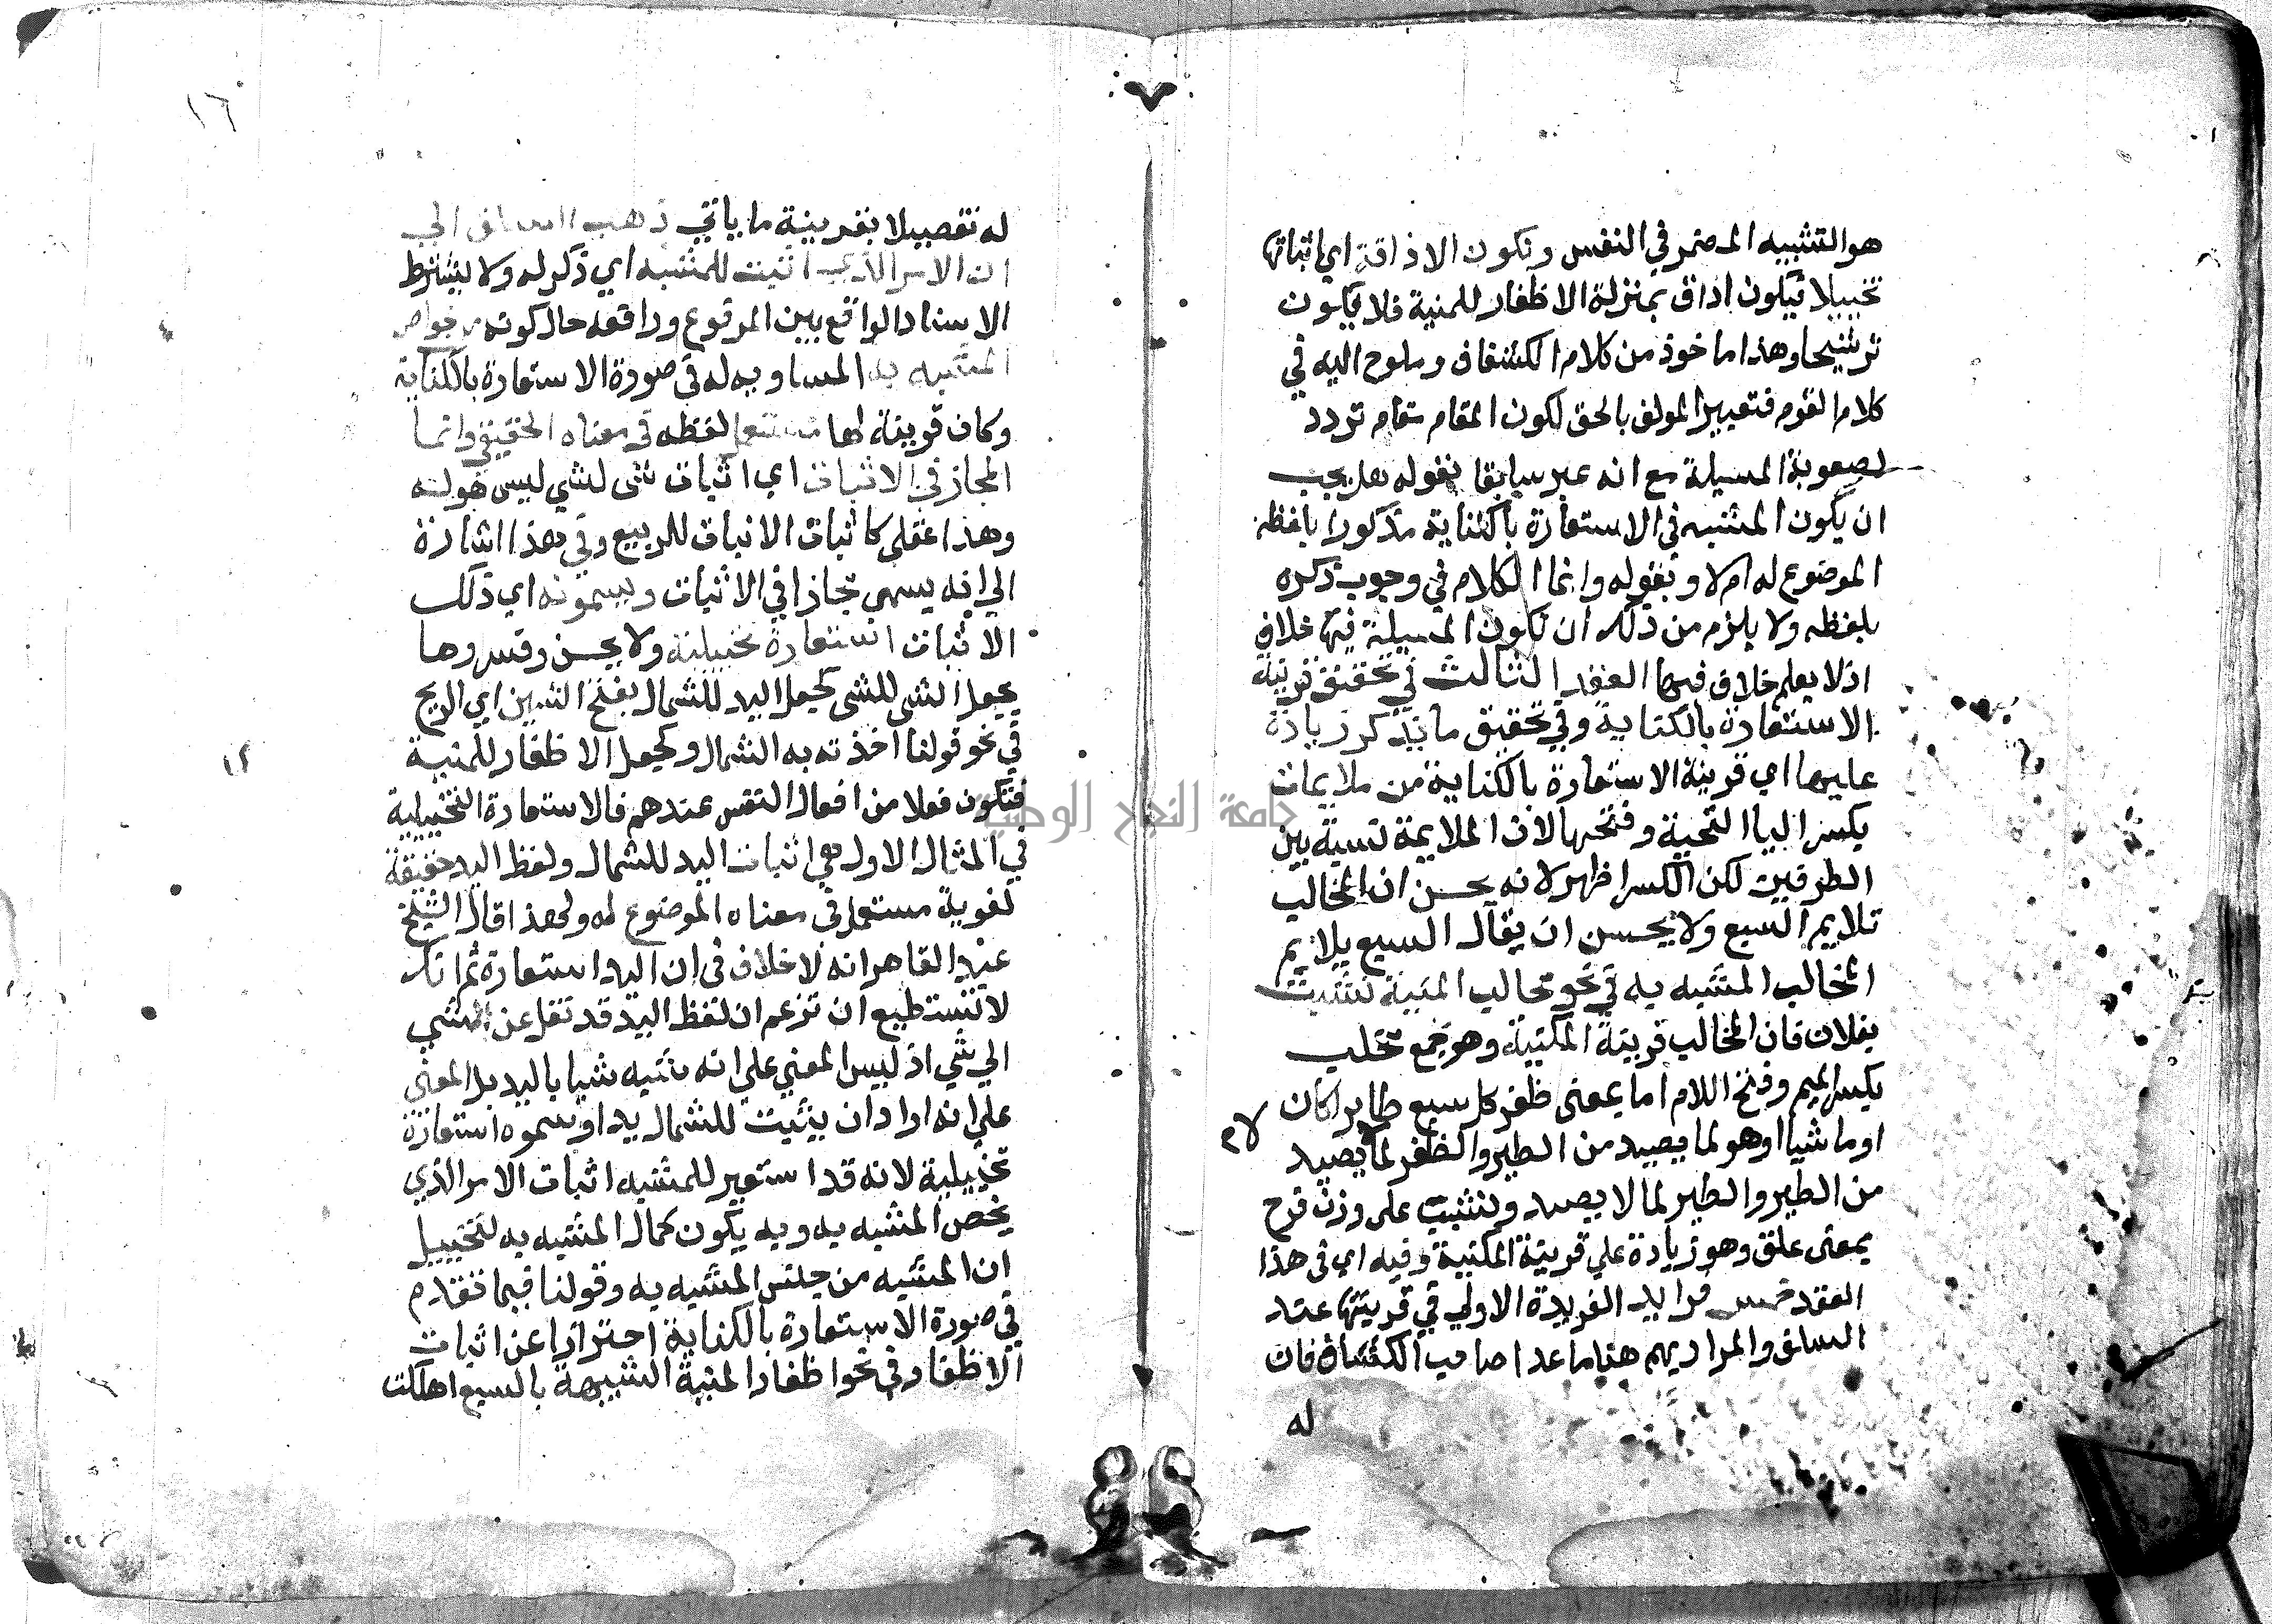 هو التشبيه المضمر في النفس وتكون الاذاقة اي اثباتها
تخييلا فيكون اذاق بمنزلة الاظفار للمنية فلا يكون
ترشيحا وهذا ماخوذ من كلام الكشاف وملوح اليه في
كلام القوم فتعبير المولف بالحق لكون المقام مقام تردد
لصعوبة المسيلة مع انه عبر سابقا بقوله هل يجب
ان يكون المشبه في الاستعارة بالكناية مذكورا بلفظه
الموضوع له ام لا وبقوله وانما الكلام في وجوب ذكره
بلفظه ولا يلزم من ذلك ان تكون المسيلة فيها خلاف
اذ لا يعلم خلاف فيها العقد الثالث في تحقيق قرينة
الاستعارة بالكناية وفي تحقيق ما يذكر زيادة
عليها اي قرينة الاستعارة بالكناية من ملايمات
بكسر اليا التحية وفتحها لان الملايمة نسبة بين
الطرفين لكن الكسر اظهر لانه يحسن ان المخالب
تلايم السبع ولا يحسن ان يقال السبع يلايم
المخالب المشبه به في نحو مخالب المنية نشبت
بفلان فان المخالب قرينة المكنية وهو جمع مخلب
بكسر الميم وفتح اللام اما بمعنى ظفر كل سبع طايرا كان
لام
او ماشيا او هو لما يصيد من الطير والظفر لما يصيد
من الطير والطير لما لا يصيد ونشبت على وزن فرح
بمعنى علق وهو زيادة علي قرينة المكنية وفيه اي في هذا
العقد خمس فرايد الفريدة الاولي في قرينتها عند
السلف والمراد بهم هنا ما عدا صاحب الكشاف فان
له
١٦
له تفصيلا بقرينة ما ياتي ذهب السلف الي
ان الامر الذي اثبت للمشبه اي ذكر له ولا يشترط
الاسناد الواقع بين المرفوع ورافعه حال كونه من خواص
المشبه به المساويه له في صورة الاستعارة بالكناية
وكان قرينة لها مستعمل لفظه في معناه الحقيقي وانما
المجاز في الاثبات اي اثبات شي لشي ليس هو له
وهذا عقلي كاثبات الانبات للربيع وفي هذا اشارة
الي انه يسمي مجازا في الاثبات ويسمونه اي ذلك
الاثبات استعارة تخييلية ولا يحسن وفسروها
بجعل الشي للشي كجعل اليد للشمال بفتح الشين اي الريح
في نحو قولنا اخذته يد الشمال وكجعل الاظفار للمنية
فتكون فعلا من افعال النفس عندهم فالاستعارة التخييلية
في المثال الاول هي اثبات اليد للشمال ولفظ اليد حقيقة
لغوية مستعمل في معناه الموضوع له ولهذا قال الشيخ
عبد القاهر انه لا خلاف في ان اليد استعارة ثم انك
لا تستطيع ان تزعم ان لفظ اليد قد نقل عن شي
الي شي اذ ليس المعني علي انه شبه شيا باليد بل المعني
علي انه اراد ان يثبت للشمال يدا وسموه استعارة
تخييلية لانه قد استعير للمشبه اثبات الامر الذي
يخص المشبه به وبه يكون كمال المشبه به لتخييل
ان المشبه من جنس المشبه به وقولنا فيما تقدم
في صورة الاستعارة بالكناية احترازا عن اثبات
الاظفار في نحو اظفار المنية الشبيهة بالسبع اهلكت
جامعة النجاح الوطنية